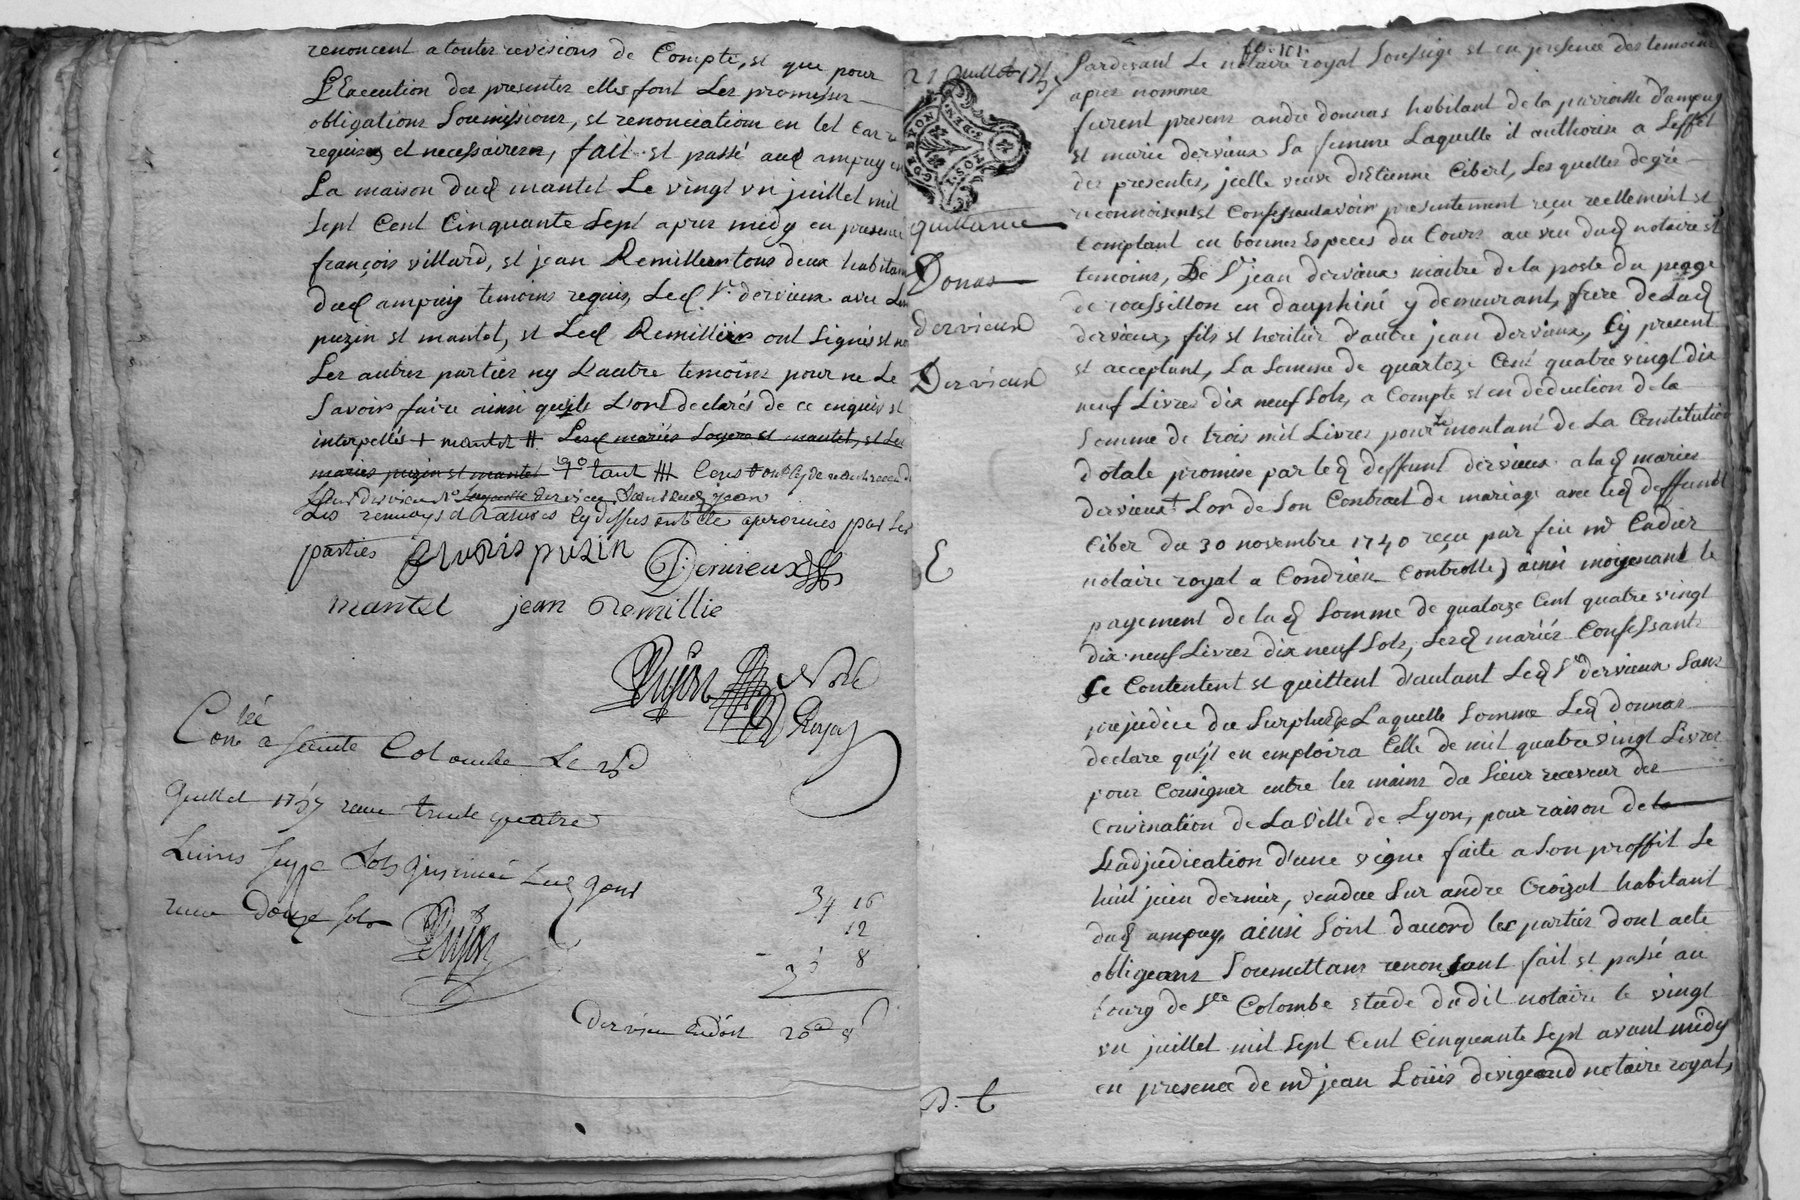 renoncent a toutes revisions de Compte, et que pour
L'Execution des presentes elles font Les promesses
obligations Soumissions, et renonciations en tel cas
requises et necessaires, fait et passé aud ampuy en
La maison dud mantel Le vingt un juillet mil
Sept Cent Cinquante Sept apres midy en presence
françois villard, et jean Remillier tous deux habitans
dud ampuy temoins requis, Led Sr. dervieux avec Led
puzin et mantel, et Led Remillier ont Signés et non
Les autres parties ny L'autre temoins pour ne Le
Savoir faire ainsi qu'ils L'ont declarés de ce enquis et
interpellés + mantel # Lesd mariés et mantel, et Les
mariés puzin et mantel tant
Les renvoys et Ratures cy dessus ont été aprouvés par Les
parties puzin Dervieux
mantel jean Remillie
Dujon Nore
Royal
Conlé a Sainte Colombe Le
Juillet 1757 reçu trente quatre
Livres seize Sols
reçu Douze sols
Dujon
34 16
12
35 8
Dervieu
21 Juillet 1757
GD DE LYON
quittance
Donas
dervieux
Dervieux
E
D. t
Pardevant Le notaire royal Soussigé et en presence des temoins
apres nommés
furent presens andre donnas habitant de la parroisse d'ampuy
et marie dervieux Sa femme Laquelle il authorise a L'effet
des presentes, jcelle veuve d'Etienne Cibert, Les quelles de gré
reconnoissent et Confessent avoir presentement reçu reellement et
Comptant en bonnes Especes du Cours au veu dud notaire et
temoins, De Sr jean dervieux maitre de la poste du peage
de roussillon en dauphiné y demeurant, frere de Lad
dervieux, fils et heritier d'autre jean dervieux, Cy present
et acceptant, La Somme de quartoze Cent quatre vingt dix
neuf Livres dix neuf Sols, a Compte et en deduction de la
Somme de trois mil Livres pour le montant de La Constitution
dotale promise par led deffunt dervieux a lad marie
dervieux + Lor de Son Contract de mariage avec led deffunt
Ciber du 30 novembre 1740 reçu par feu me Cadier
notaire royal a Condrieu Controllé) ainsi moyenant le
payement de lad Somme de quatorze Cent quatre vingt
dix neuf Livres dix neuf Sols, Lesd mariés Confessants
Se Contentent et quittent d'autant Led Sr dervieux Sans
prejudice du Surplus de Laquelle Somme Led donnas
declare qu'jl en emploira Celle de mil quatre vingt Livres
pour Consigner entre les mains du Sieur receveur des
Consination de La Ville de Lyon, pour raison de la
L'adjudication d'une vigne faite a Son proffit Le
huit juin dernier, vendue Sur andre Croizat habitant
dud ampuy, ainsi Sont d'acord les parties dont acte
obligeans Soumettans renonsant fait et passé au
bourg de Ste Colombe etude dudit notaire le vingt
un juillet mil Sept Cent Cinquante Sept avant midy
en presence de me jean Loüis devigeand notaire royal,